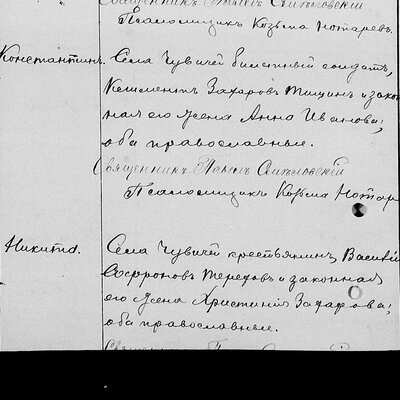 Священникъ Павелъ
Псаломщикъ Козьма Нотаревъ.
Константинъ.
Села Чувичей билетный солдатъ,
Климентъ Захаровъ Тишинъ и закон
ная его жена Анна Иванова;
оба православные.
Священникъ Павелъ
Псаломщикъ Козьма Нотар
Никита.
Села Чувичей крестьянинъ Василій
Софроновъ Тереховъ и законная
его жена Христинія Захарова;
оба православные.